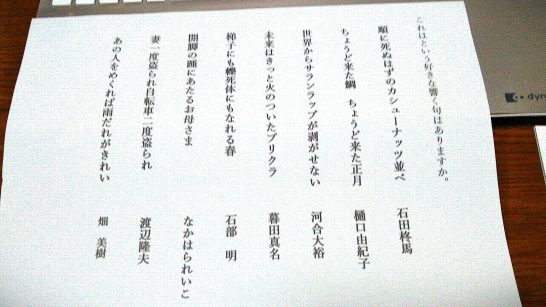 これはという好きな響く句はありますか。
順に死ぬはずのカシューナッツ並べ 石田柊馬
ちょうど来た鯛 ちょうど来た正月 樋口由紀子
世界からサランラップが剥がせない 河合大裕
未来はきっと火のついたプリクラ 暮田真名
梯子にも轢死体にもなれる春 石部 明
開脚の踵にあたるお母さま なかはられいこ
妻一度盗られ自転車二度盗られ 渡辺隆夫
あの人をめくれば雨だれがきれい 畑 美樹
dyn